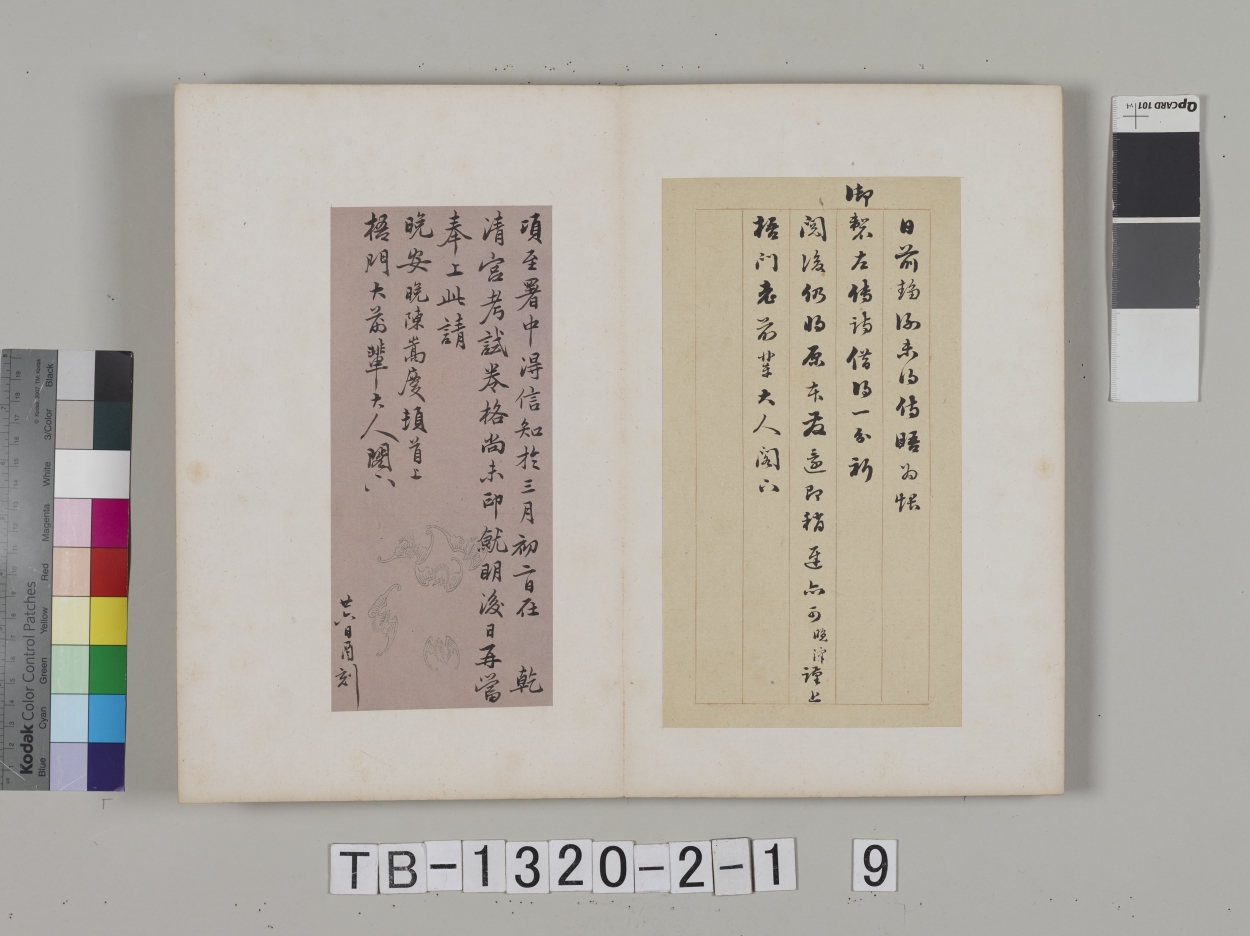 日前趨謁未得傳晤為悵
御
製左傳詩借得一部祈
閱後仍將原本發還即稍遲亦可晚謹上
梧門老前輩大人閣下
頃至署中得信知於三月初二日在 乾
清宮考試卷格尚未印就明後日再當
奉上此請
晚安晚陳嵩慶頓首上
梧門大前輩大人閣下
廿六日酉刻
TB-1320-2-1 9
QPCARD 101 v1
Kodak Color Control Patches
Blue Cyan Green Yellow Red Magenta White 3/Color Black